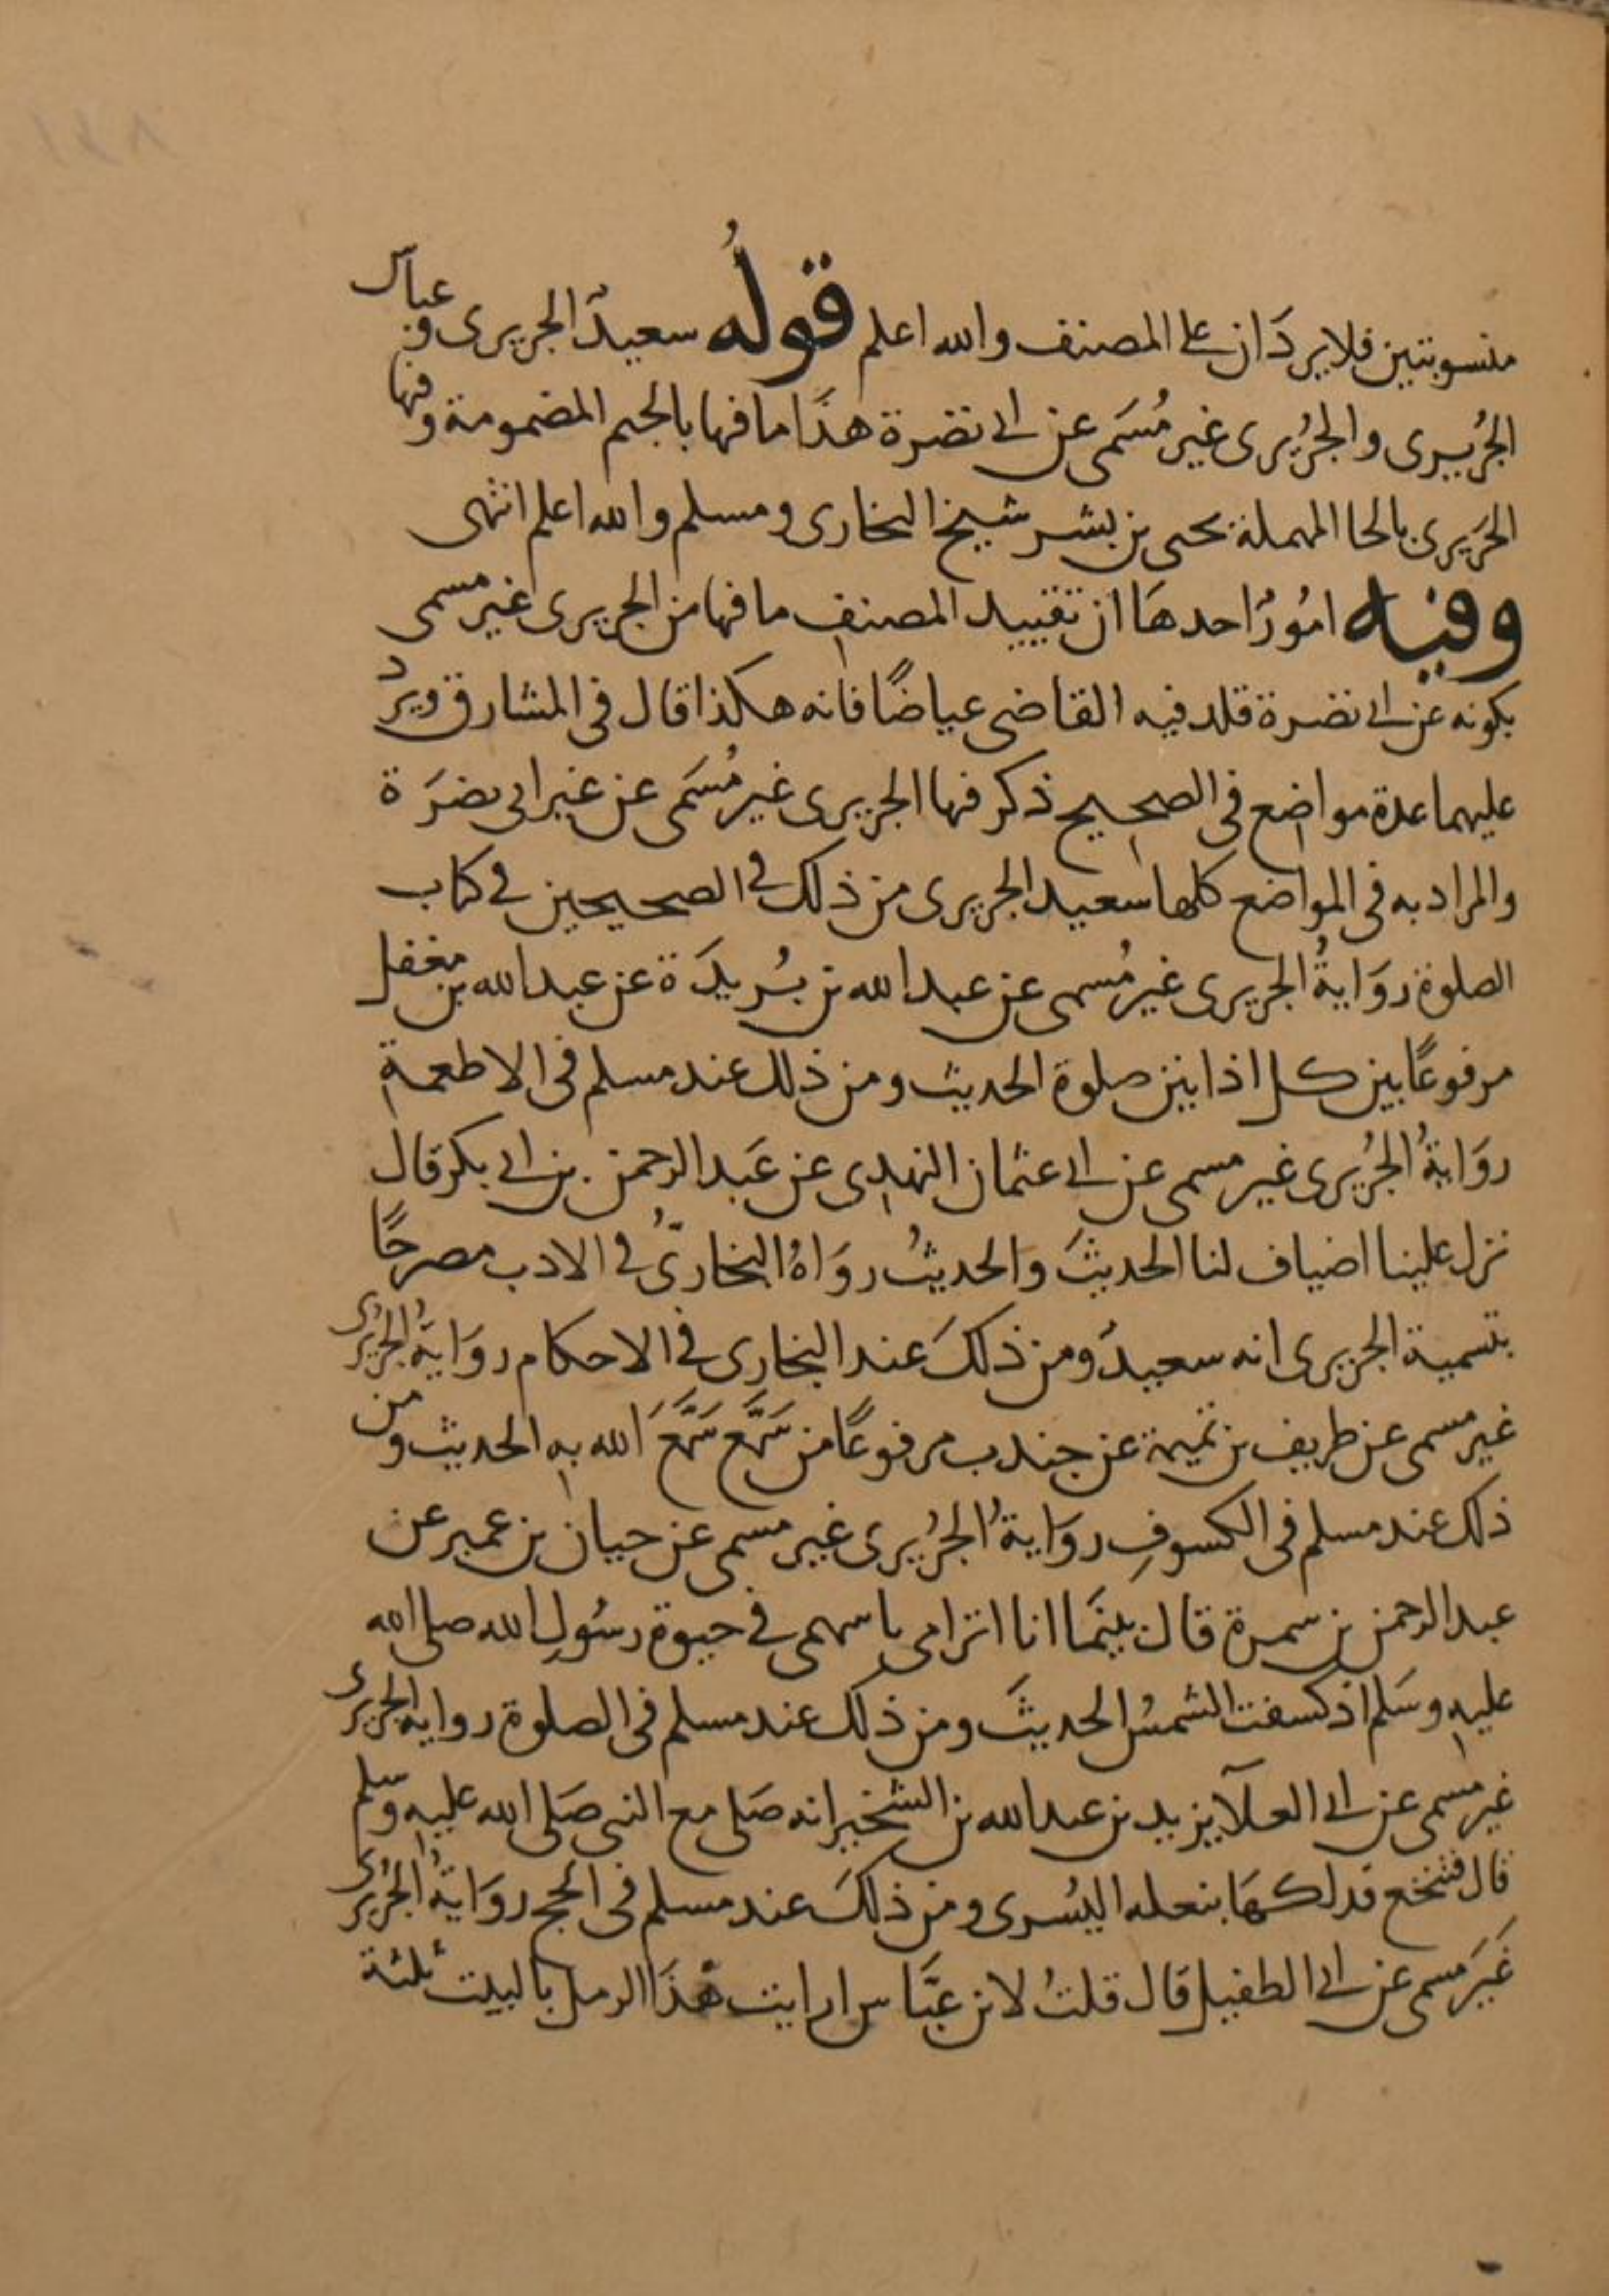 منسوبتين فلا يردَان على المصنف والله اعلم قولهُ سعيدٌ الجريرى وعباس
الجُريرى والجُرُيرى غير مُسَمى عن ابى نضرة هذَا ما فيها بالجيم المضمومة وفيها
الحَرَيرى بالحا المهملة يحيى بن بشر شيخ البخارى ومسلم والله اعلم انتهى
وفيه امُورٌ احدهَا ان تقييد المصنف ما فيها من الجريرى غير مسمى
بكونه عن ابى نضرة قلد فيه القاضى عياضًا فانه هكذا قال فى المشارق ويردُ
عليهما عدة مواضع فى الصحيح ذكر فيها الجريرى غير مُسَمَى عن غير ابى نضرَة
والمراد به فى المواضع كلها سعيد الجريرى من ذلك فى الصحيحين فى كتاب
الصلوة روَايةُ الجريرى غير مُسمى عن عبد الله بن بُريدَة عن عبد الله بن مغفل
مرفوعًا بين كل اذانين صلوة الحديث ومن ذلك عند مسلم فى الاطعمة
روَايةُ الجُرُيرى غير مسمى عن ابى عثمان النهدى عن عَبد الرحمن بن ابى بكر قال
نزل علينا اضياف لنا الحديثَ والحديثُ روَاهُ البخارىُّ فى الادب مصرحًا
بتسمية الجريرى انه سعيدٌ ومن ذلكَ عند البخارى فى الاحكام روَايةُ الجُرُيرى
غير مسمى عن طريف بن تميمة عن جندب مرفوعًا من سَمَّع سَمَّعَ الله بهِ الحديث ومن
ذلك عند مسلم فى الكسوفِ روَايةُ الجُرُيرى غير مسمى عن حيان بن عمير عن
عبد الرحمن بن سمرة قال بينَما انا اترامى باسهمى فى حيوة رسُولِ الله صلى الله
عليهِ وسَلم اذ كسفت الشمسُ الحديثَ ومن ذلك عند مسلم فى الصلوة رواية الجريرى
غير مسمى عن ابى العلآ يزيد بن عبد الله بن الشخير انه صَلى مع النبى صَلى الله عليه وسلم
قال فتنخع فدلكهَا بنعله اليُسرى ومن ذلكَ عند مسلم فى الحج روَايةُ الجُرُيرى
غَيرَ مسمى عن ابى الطفيل قال قلتُ لابن عبَّاس ارايت هذَا الرمل بالبيت ثلثة